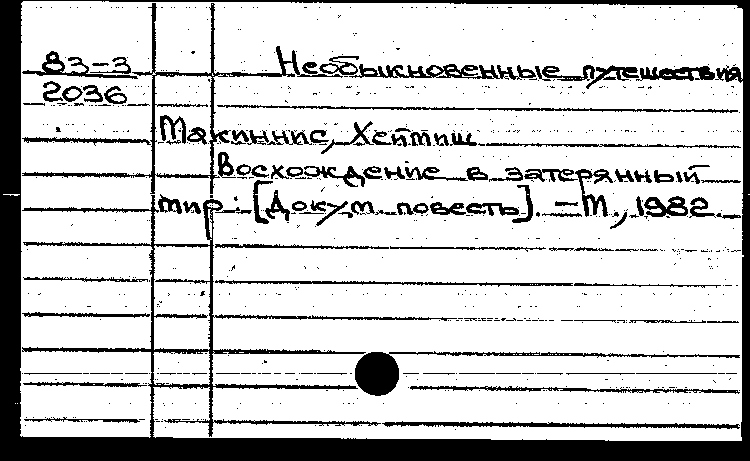 83-3
2036
Необыкновенные путешествия
Макиннис, Хеймиш
Восхождение в затерянный
мир: [Докум. повесть]. – М., 1982.